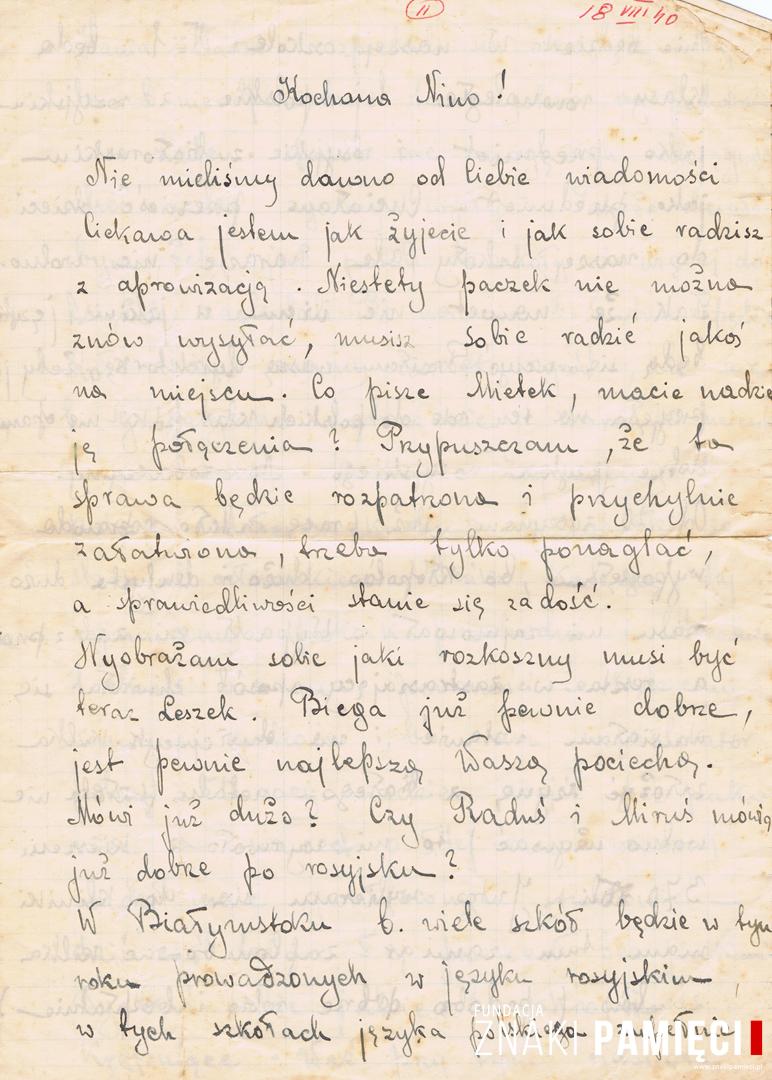 II 18 VIII 40
Kochana Nino!
Nie mieliśmy dawno od Ciebie wiadomości
Ciekawa jestem jak żyjecie i jak sobie radzisz
z aprowizacją. Niestety paczek nie można
znów wysyłać, musisz sobie radzić jakoś
na miejscu. Co pisze Mietek, macie nadzie
ję połączenia? Przypuszczam, że ta
sprawa będzie rozpatrzona i przychylnie
załatwiona, trzeba tylko ponaglać,
a sprawiedliwości stanie się zadość.
Wyobrażam sobie jaki rozkoszny musi być
teraz Leszek. Biega już pewnie dobrze,
jest pewnie najlepszą Waszą pociechą.
Mówi już dużo? Czy Raduś i Miruś mówią
już dobrze po rosyjsku?
W Białymstoku b. wiele szkół będzie w tym
roku prowadzonych w języku rosyjskim,
w tych szkołach języka polskiego zupełnie
FUNDACJA
ZNAKI PAMIĘCI
www.znakipamieci.pl